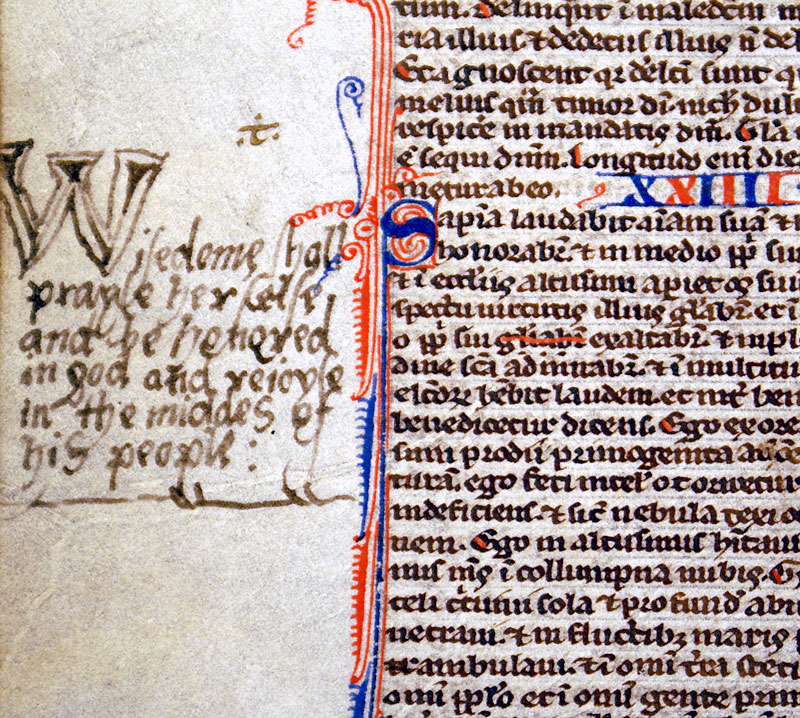 .t.
Wisedome shall
prayse her selfe
and be honored
in god and reioyse
in the middes of
his people :
tum. Delinqūt ī maledcm̄
ria illius. ⁊ dedecus illiꝰ n̄
Et agnoscent qr̄ delcī sunt
melius qm̄ timor dī. nich̄
respic̄e in mandatis dīn̄i. Gl̄a
ē sequi dn̄m. Longitudo enī
meturabeo. XXIIII
Sapīa laudabit aīam suā ⁊
honorabr̄. ⁊ in medio pp̄l
⁊ ī eccl̄iis altissimi apiet os
spectu uirtutis illius gl̄abr̄. et ī
o pp̄l sui exaltabr̄. ⁊ ī
dine sc̄a admirabr̄. ⁊ ī multitu
elc̄orꝝ hēbit laudem. et int̄ ben
benedicetur dicens. Ego ex ore
sum prodii primogenita
turā. ego feci in cel̄ o
indeficiens. ⁊ sic̄ nebula texi
nem. Ego in altissimis hītaui
mꝰ ī collumpna nubis.
celi circ̄uiui sola ⁊ profund̄
netraui. ⁊ in fluctibꝫ maris
ambulaui. ⁊ ī omī t̄ra steti
omī pp̄lo et ī omī gente